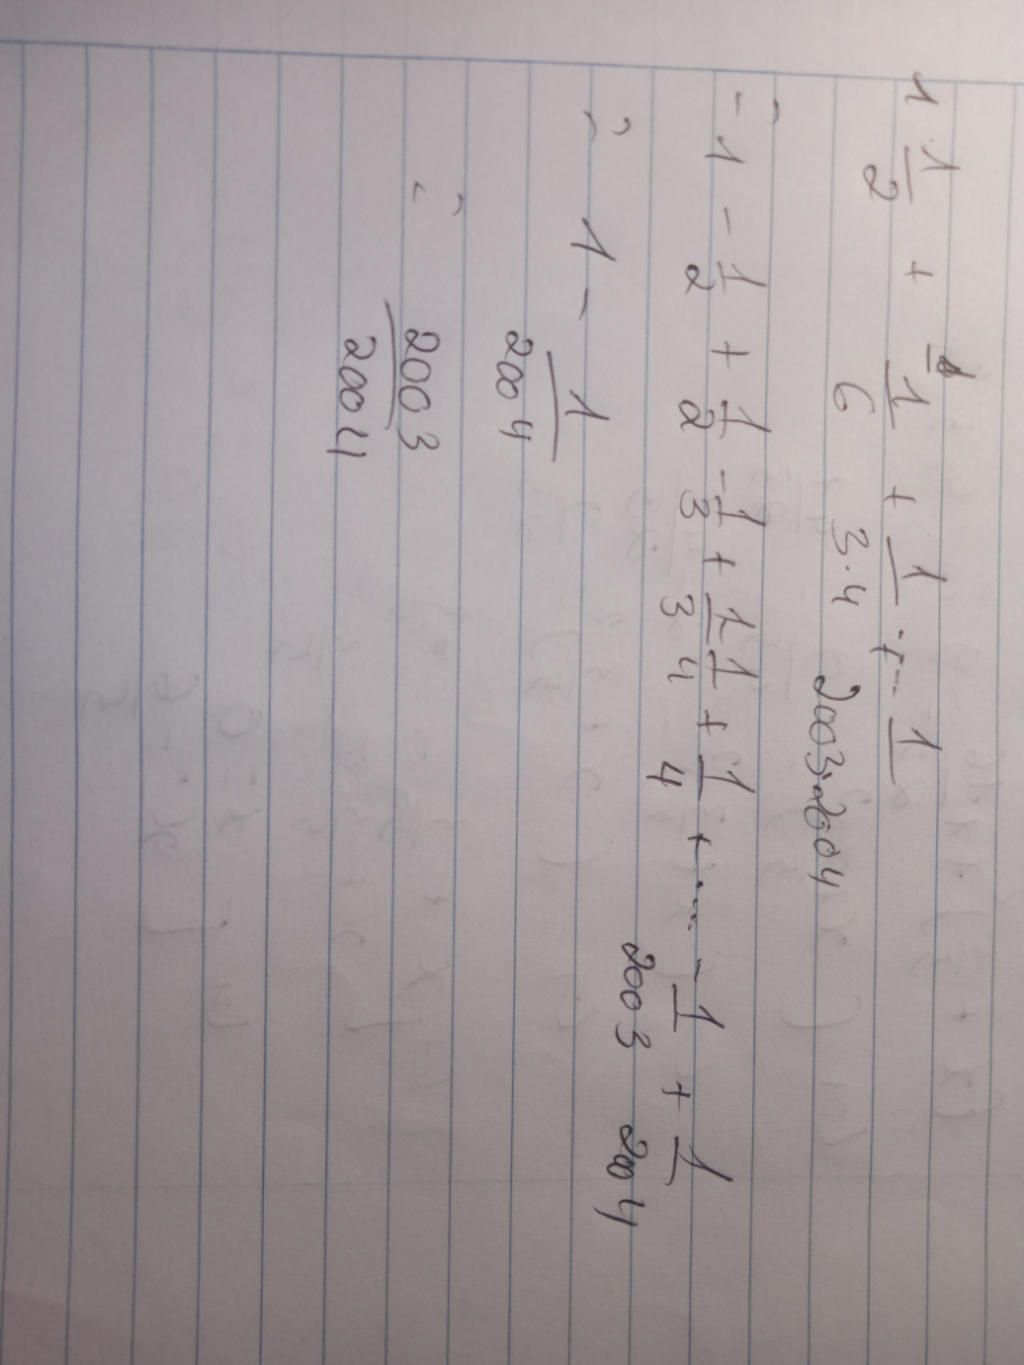 1 1/2 + 1/6 + 1/3.4 + ... 1/2003.2004
= 1 - 1/2 + 1/2 - 1/3 + 1/3 1/4 + 1/4 + .... - 1/2003 + 1/2004
= 1 - 1/2004
= 2003/2004